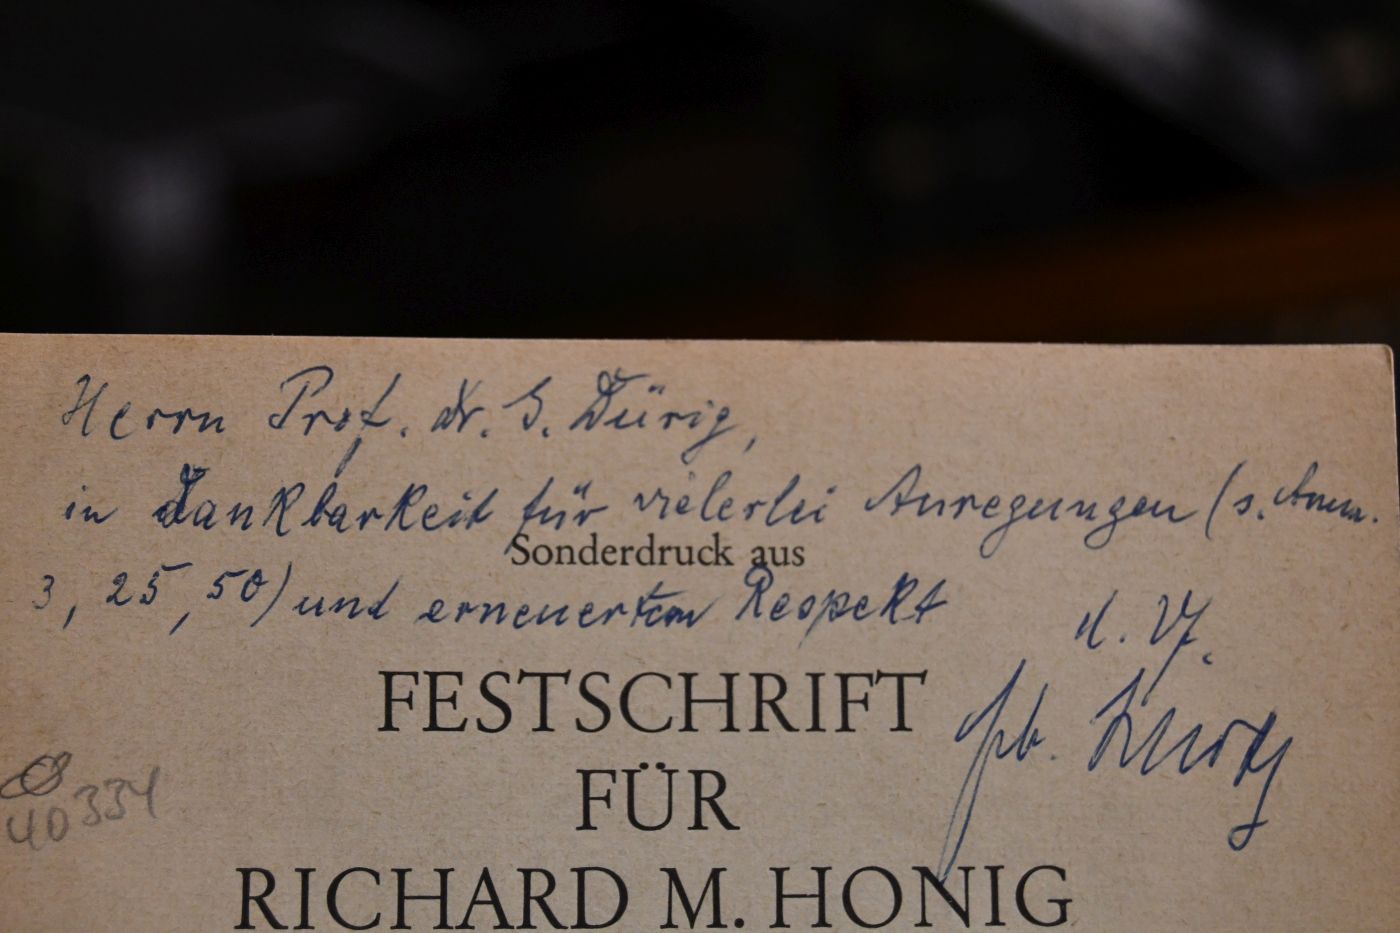 Herrn Prof. Dr. G. Dürig,
in Dankbarkeit für vielerlei Anregungen (s. Anm.
3, 25, 50) und erneuertem Respekt
d. Vf.
Sonderdruck aus
FESTSCHRIFT
FÜR
RICHARD M. HONIG
40334